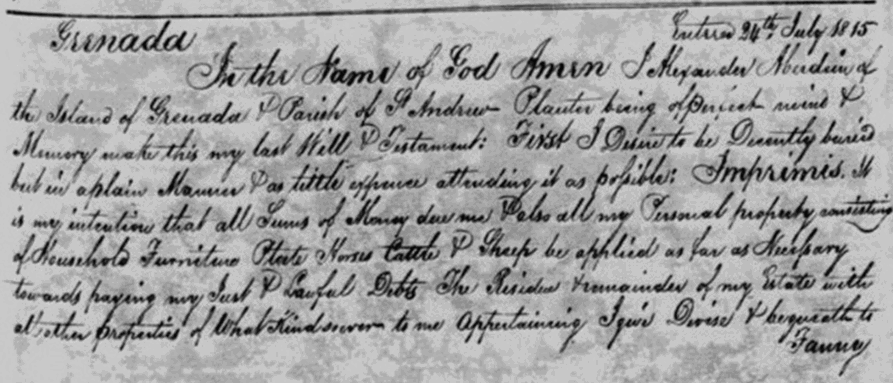 Grenada
Entered 24th July 1815
In the Name of God Amen I Alexander Aberdein of
the Island of Grenada & Parish of St Andrew Planter being of perfect mind &
Memory make this my last Will & Testament: First I Desire to be Decently buried
but in a plain Manner & as little expence attending it as possible: Imprimis. It
is my intention that all Sums of Money due me & also all my Personal property consisting
of Household Furniture Plate Horses Cattle & Sheep be applied as far as Necessary
towards paying my Just & Lawful Debts The Residue & remainder of my Estate with
all other properties of What Kind soever to me Appertaining I give Devise & bequeath to
Fanny